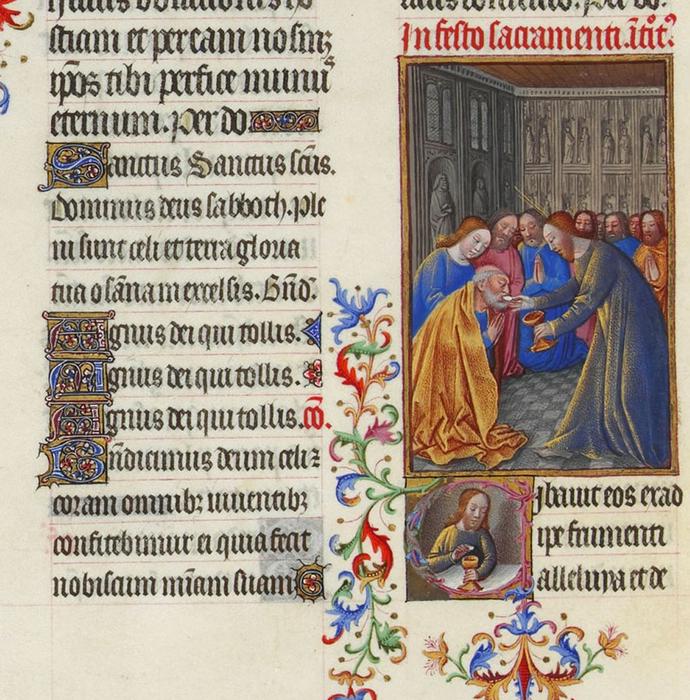 stiam et percam nosmz
ipos tibi perfice munu
eternum. Per do
Sanctus Sanctus scus.
Dominus deus sabboth. Ple
ni sunt celi et terra gloria
tua osana in excelsis. Bnd.
Agnus dei qui tollis.
Agnus dei qui tollis.
Agnus dei qui tollis. co.
Bndicimus deum celi z
coram omnibz uiuentibz
confitebimur ei quia fecit
nobiscum miam suam
In festo sacramenti. itit.
Cibauit eos ex ad
ipe frumenti
alleluya et de